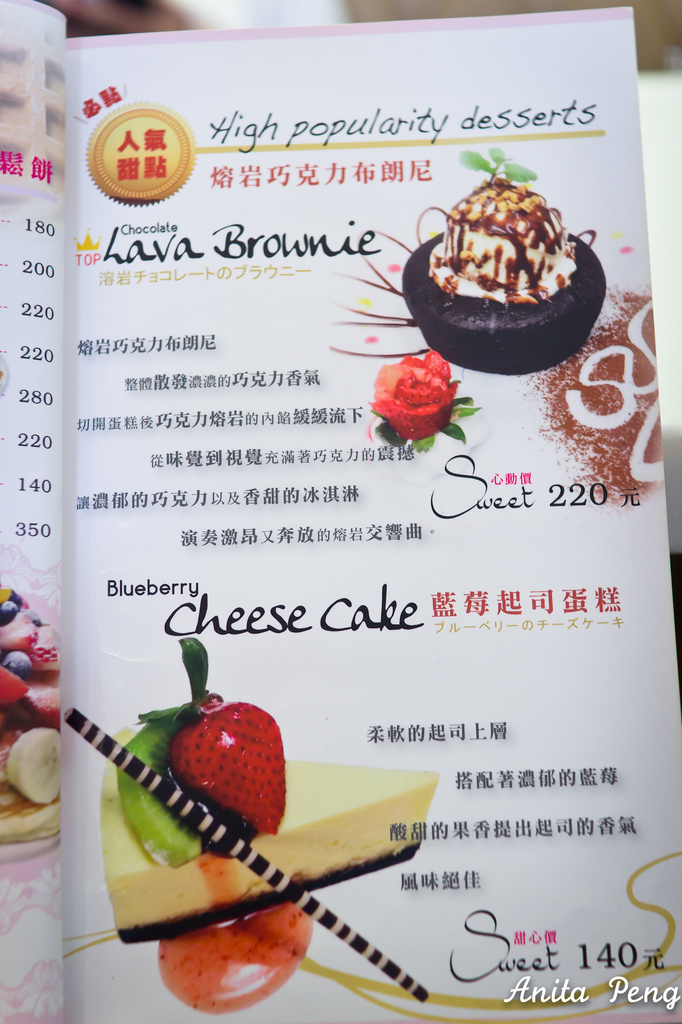 鬆餅
180
200
220
220
280
220
140
350
必點
人氣
甜點
High popularity desserts
熔岩巧克力布朗尼
TOP
Chocolate
Lava Brownie
溶岩チョコレートのブラウニー
熔岩巧克力布朗尼
整體散發濃濃的巧克力香氣
切開蛋糕後巧克力熔岩的內餡緩緩流下
從味覺到視覺充滿著巧克力的震撼
讓濃郁的巧克力以及香甜的冰淇淋
演奏激昂又奔放的熔岩交響曲。
心動價
Sweet 220 元
Blueberry
Cheese Cake 藍莓起司蛋糕
ブルーベリーのチーズケーキ
柔軟的起司上層
搭配著濃郁的藍莓
酸甜的果香提出起司的香氣
風味絕佳
甜心價
Sweet 140 元
Anita Peng